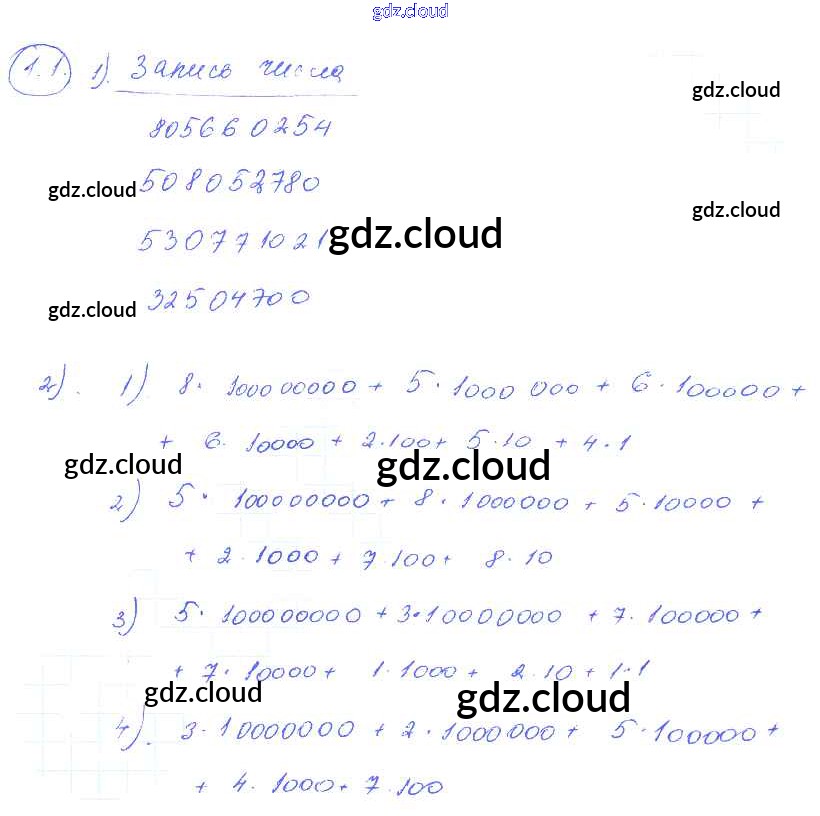 gdz.cloud
1.1. 1). Запись числа
gdz.cloud
805660254
gdz.cloud 508052780
gdz.cloud
530771021 gdz.cloud
gdz.cloud 32504700
2). 1) 8·100000000 + 5·1000 000 + 6·100000 +
+ 6·10000 + 2·100 + 5·10 + 4·1
gdz.cloud gdz.cloud
2) 5·100000000 + 8·1000000 + 5·10000 +
+ 2·1000 + 7·100 + 8·10
3) 5·100000000 + 3·10000000 + 7·100000 +
+ 7·10000 + 1·1000 + 2·10 + 1·1
gdz.cloud gdz.cloud
4). 3·10000000 + 2·1000000 + 5·100000 +
+ 4·1000 + 7·100